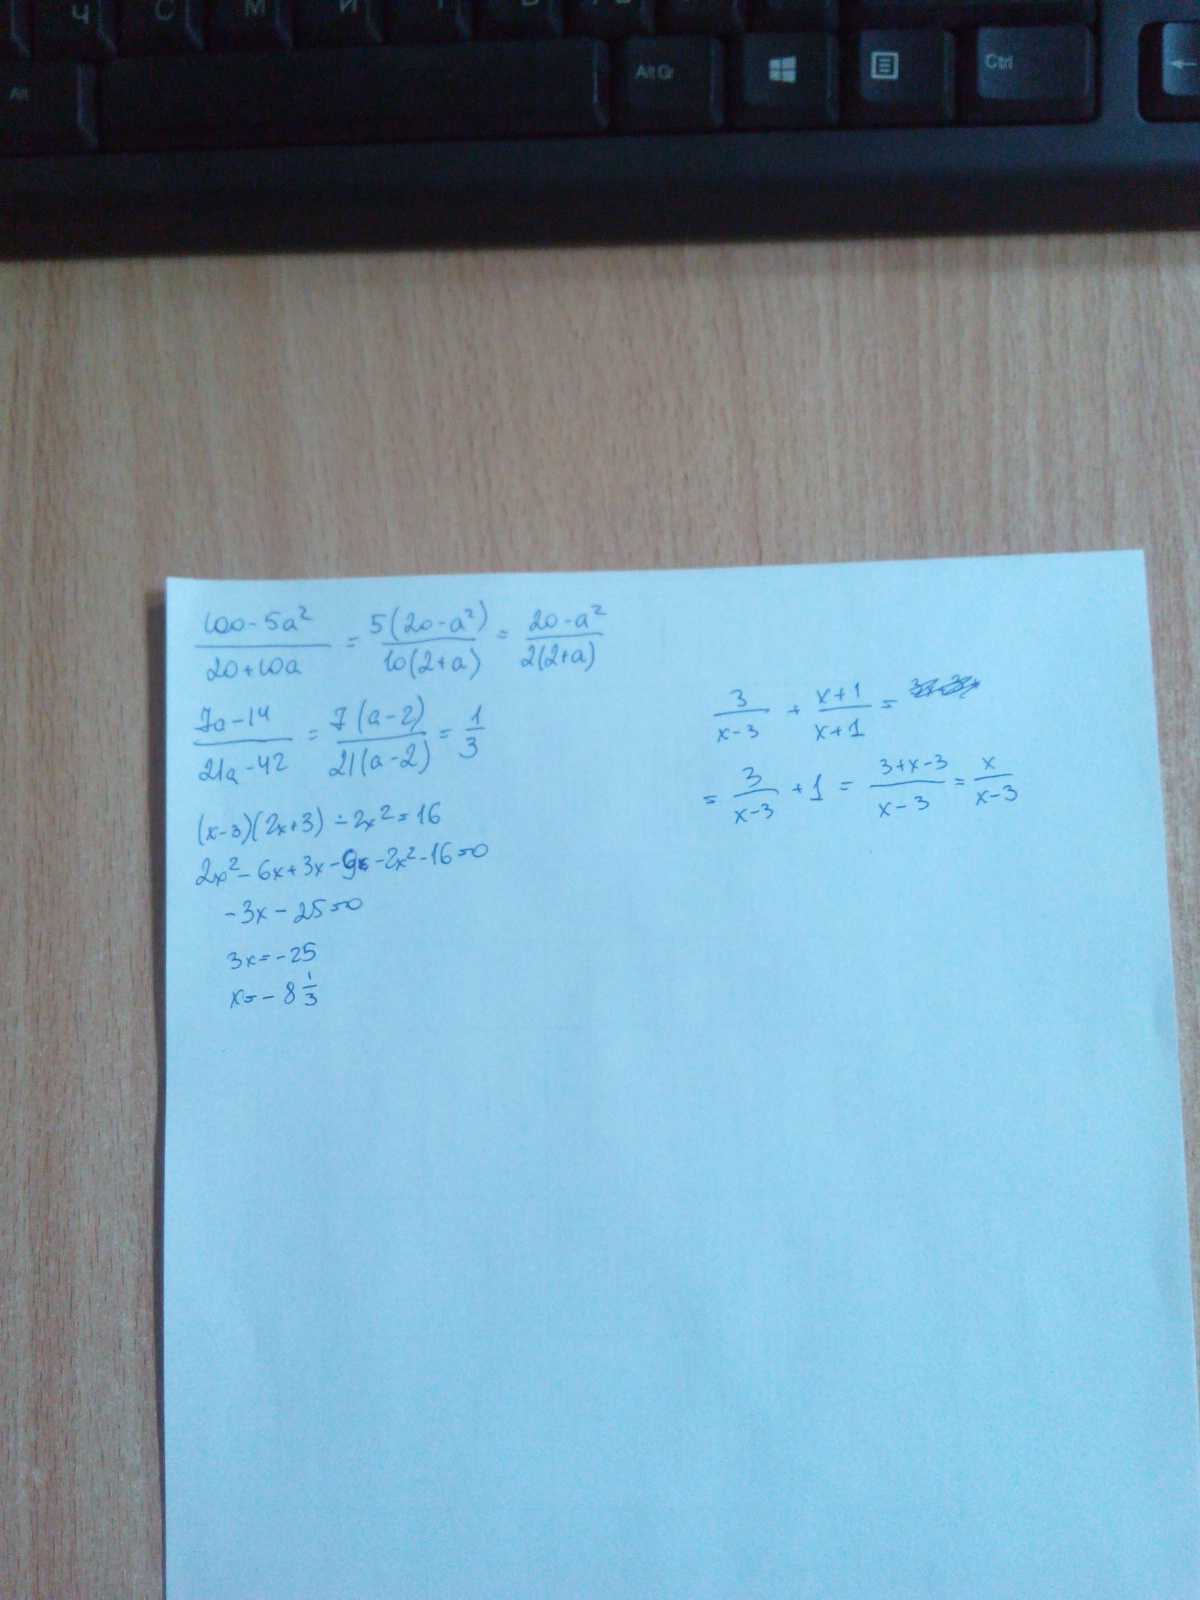 Ч С М И Т Ь
Alt Alt Gr Ctrl ←
(100-5a²)/(20+10a) = 5(20-a²)/10(2+a) = (20-a²)/2(2+a)
(7a-14)/(21a-42) = 7(a-2)/21(a-2) = 1/3
(x-3)(2x+3) - 2x² = 16
2x² - 6x + 3x - 9 - 2x² - 16 = 0
-3x - 25 = 0
3x = -25
x = -8 1/3
3/(x-3) + (x+1)/(x+1) =
= 3/(x-3) + 1 = (3+x-3)/(x-3) = x/(x-3)